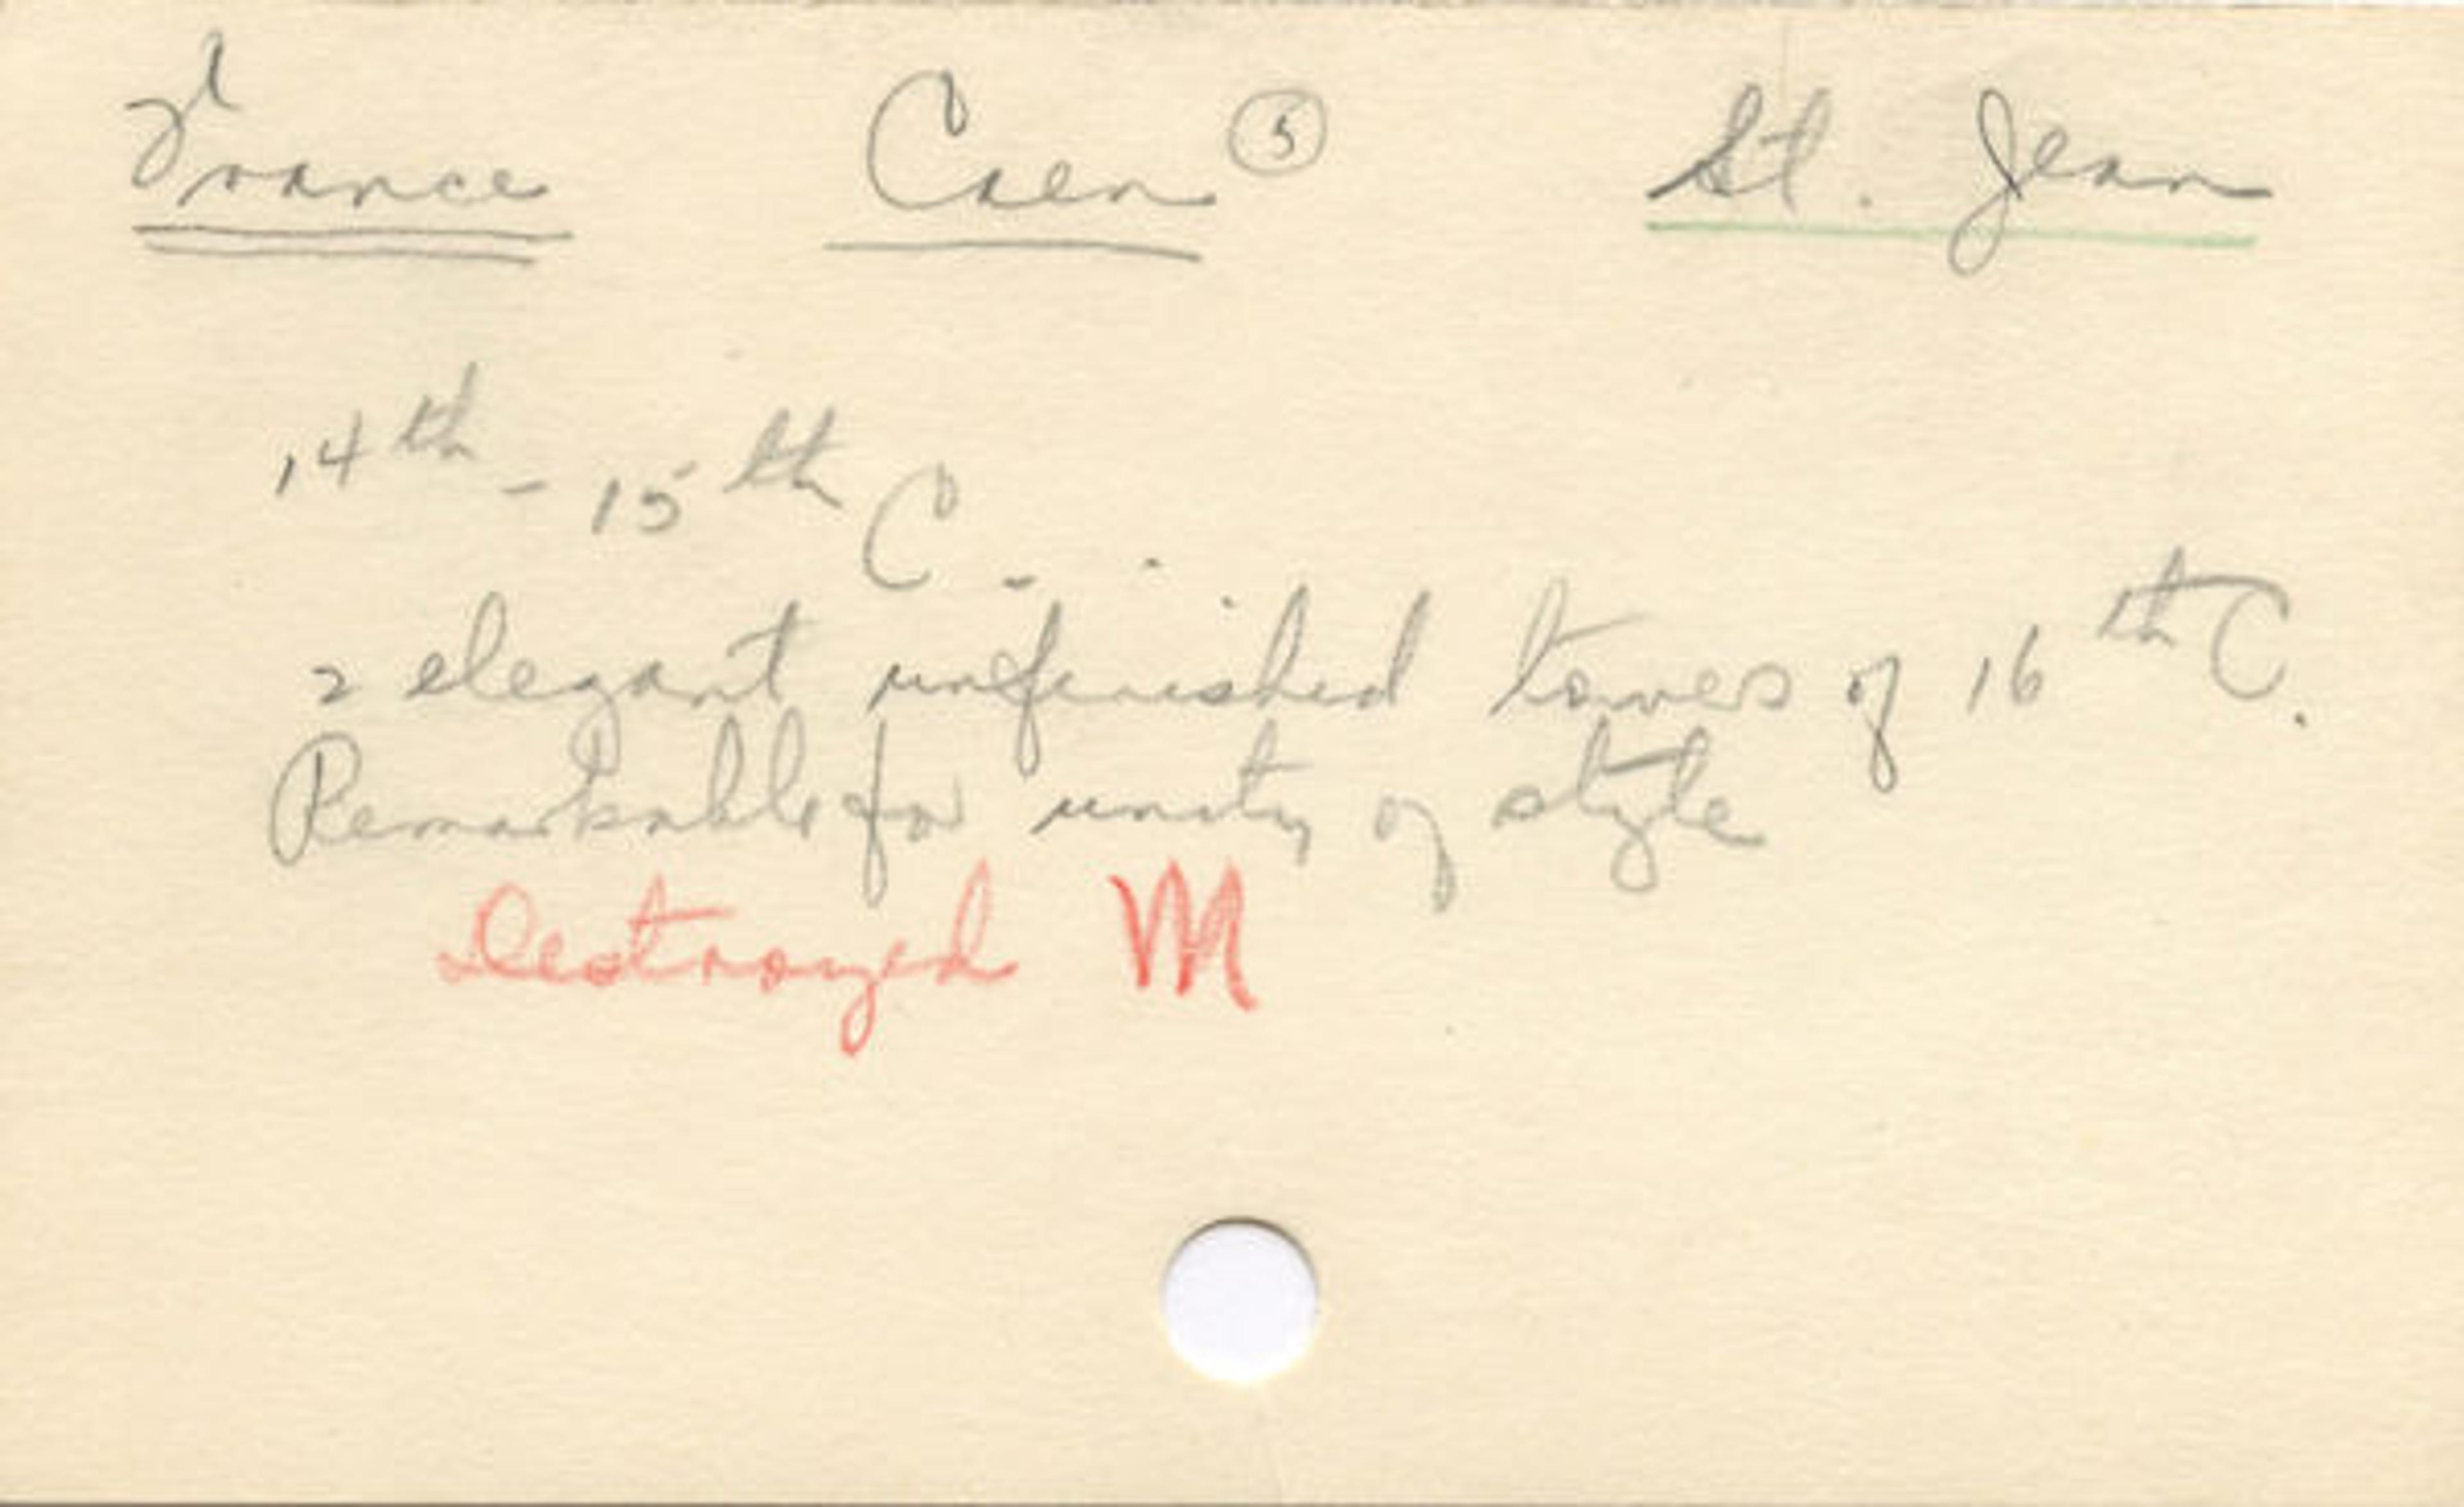 France Caen ⑤ St. Jean
14th - 15th C.
2 elegant unfinished towers of 16th C.
Remarkable for unity of style
Destroyed M